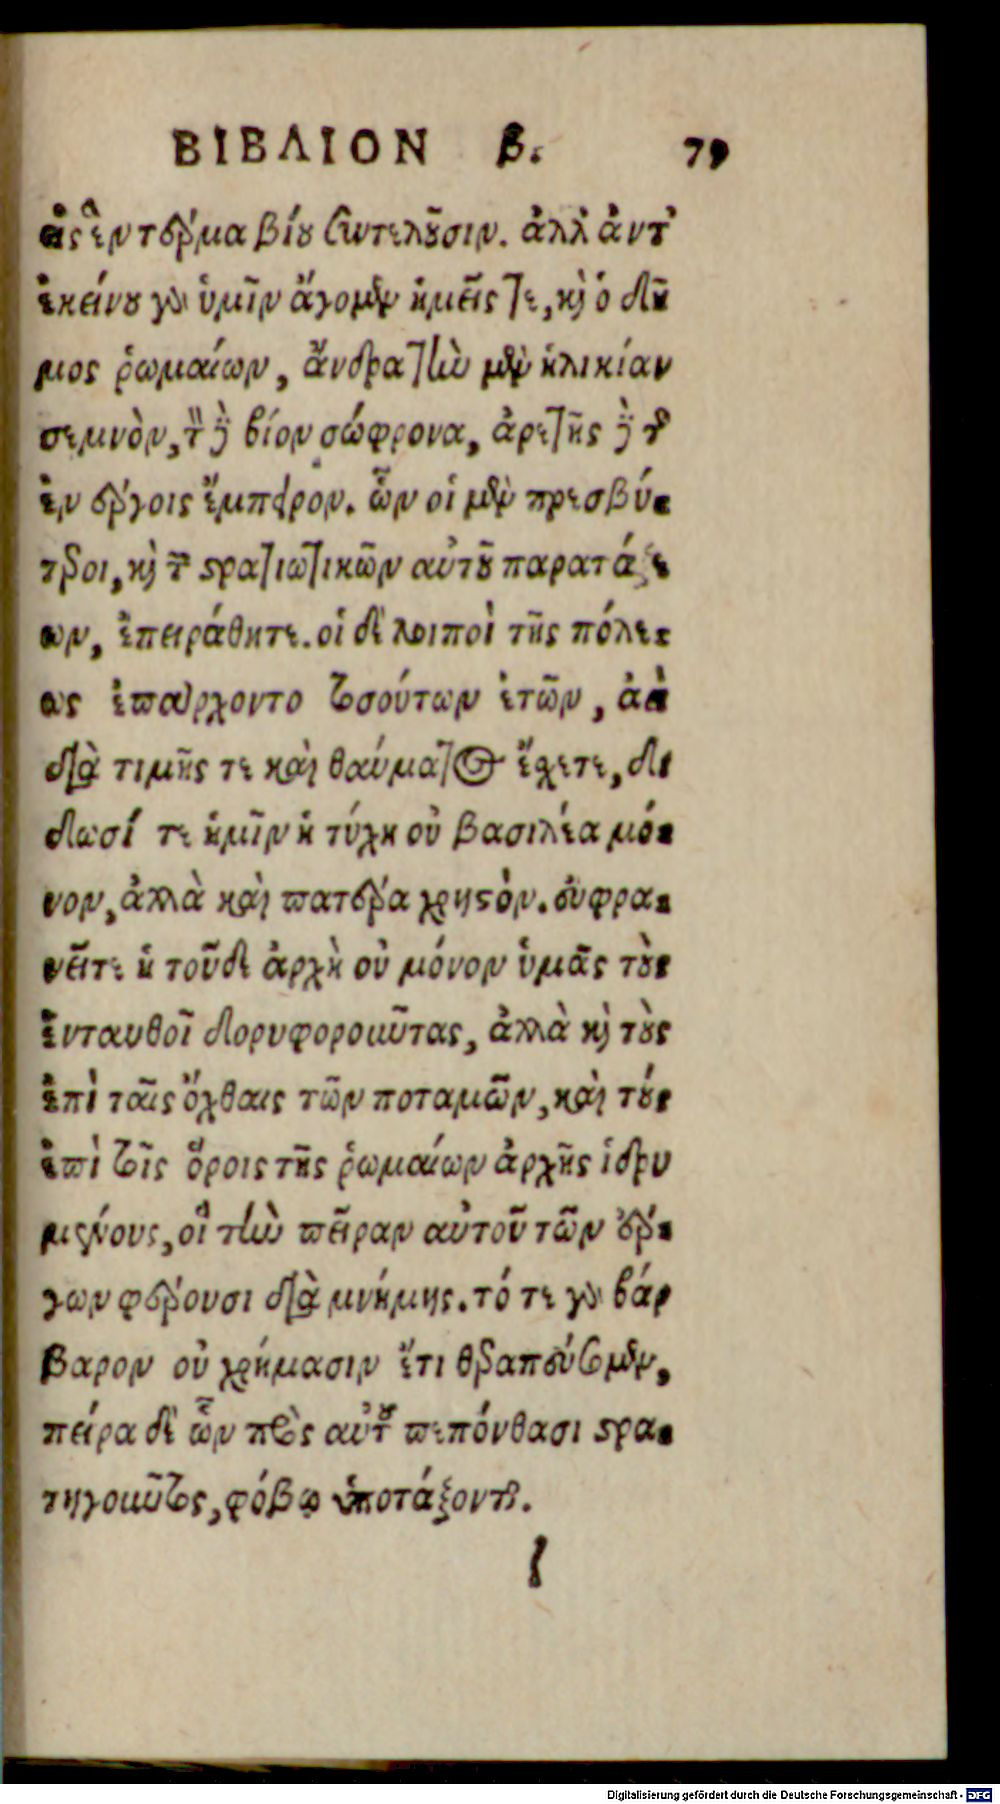 ΒΙΒΛΙΟΝ β. 79
εἰς ἓν τέρμα βίου συντελοῦσιν. ἀλλ' ἀντ'
ἐκείνου γὰρ ὑμῖν ἄγομεν ἡμεῖς τε, καὶ ὁ δῆ
μος ῥωμαίων, ἄνδρα τὴν μὲν ἡλικίαν
σεμνὸν, τὸν δὲ βίον σώφρονα, ἀρετῆς δὲ τῆς
ἐν ἔργοις ἔμπειρον. ὧν οἱ μὲν πρεσβύ-
τεροι, καὶ τῶν στρατιωτικῶν αὐτοῦ παρατάξε
ων, ἐπειράθητε. οἱ δὲ λοιποὶ τῆς πόλε-
ως ἐπαύρχοντο τοσούτων ἐτῶν, ἀεὶ
διὰ τιμῆς τε καὶ θαύματος ἔχετε, δι
δωσί τε ἡμῖν ἡ τύχη οὐ βασιλέα μό-
νον, ἀλλὰ καὶ πατέρα χρηστόν. εὐφρα-
νεῖτε ἡ τοῦδε ἀρχὴ οὐ μόνον ὑμᾶς τοὺς
ἐνταυθοῖ δορυφοροῦντας, ἀλλὰ καὶ τοὺς
ἐπὶ ταῖς ὄχθαις τῶν ποταμῶν, καὶ τοὺς
ἐπὶ τοῖς ὅροις τῆς ῥωμαίων ἀρχῆς ἱδρυ
μένους, οἳ τὴν πεῖραν αὐτοῦ τῶν ἔρ-
γων φέρουσι διὰ μνήμης. τό τε γὰρ βάρ
βαρον οὐ χρήμασιν ἔτι θεραπεύσομεν,
πείρα δὲ ὧν πρὸς αὐτοῦ πεπόνθασι στρα-
τηγοῦντος, φόβῳ ὑποτάξονται.
l
Digitalisierung gefördert durch die Deutsche Forschungsgemeinschaft - DFG